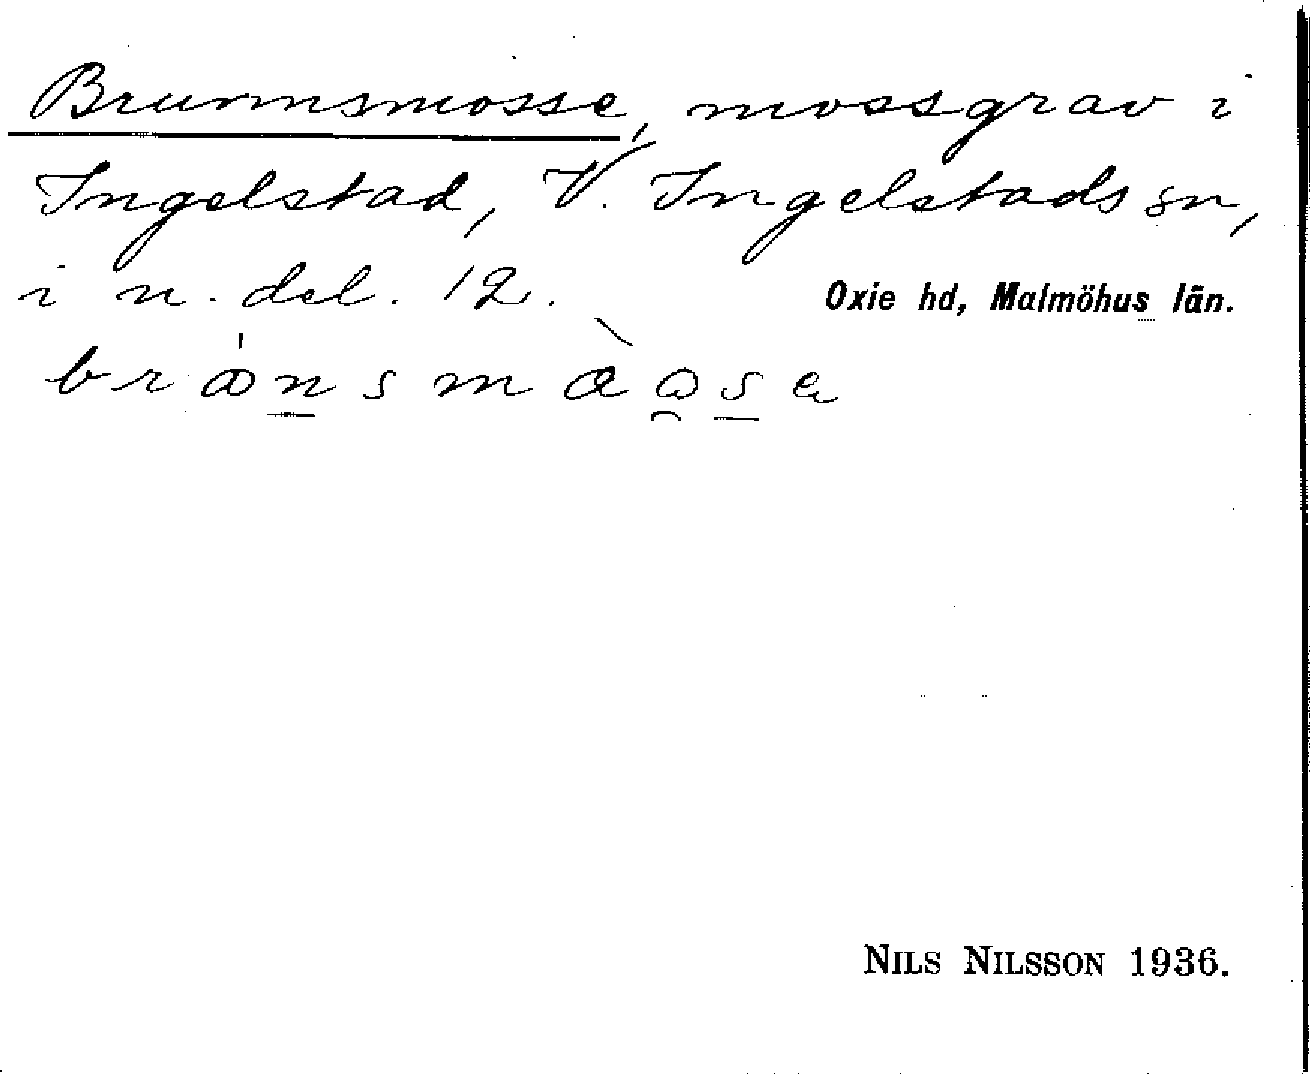 Brunnsmosse, mossgrav i
Ingelstad, V. Ingelstads sn,
i n. del. 12.
Oxie hd, Malmöhus län.
NILS NILSSON 1936.